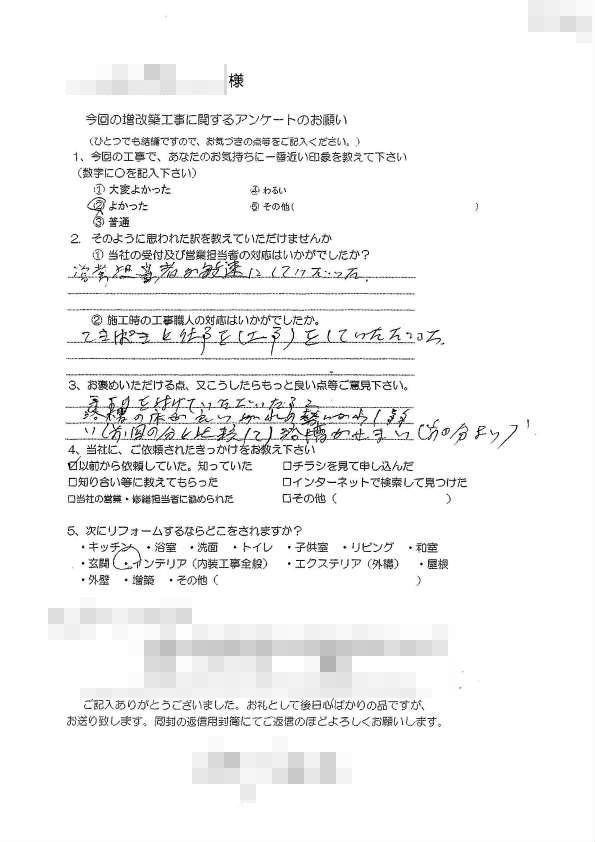 様
今回の増改築工事に関するアンケートのお願い
(ひとつでも結構ですので、お気づきの点等をご記入ください。)
1、今回の工事で、あなたのお気持ちに一番近い印象を教えて下さい
(数字に○を記入下さい)
① 大変よかった ④ わるい
② よかった ⑤ その他( )
③ 普通
2. そのように思われた訳を教えていただけませんか
① 当社の受付及び営業担当者の対応はいかがでしたか?
営業担当者が敏速にしていただいた
② 施工時の工事職人の対応はいかがでしたか。
てきぱきと仕事を(工事)をしていただいた
3、お褒めいただける点、又こうしたらもっと良い点等ご意見下さい。
い(前回の分と比較して)浴槽がせまい(前の分より)
4、当社に、ご依頼されたきっかけをお教え下さい
☑以前から依頼していた。知っていた □チラシを見て申し込んだ
□知り合い等に教えてもらった □インターネットで検索して見つけた
□当社の営業・修繕担当者に勧められた □その他( )
5、次にリフォームするならどこをされますか?
・キッチン ・浴室 ・洗面 ・トイレ ・子供室 ・リビング ・和室
・玄関 ・インテリア(内装工事全般) ・エクステリア(外構) ・屋根
・外壁 ・増築 ・その他( )
ご記入ありがとうございました。お礼として後日心ばかりの品ですが、
お送り致します。同封の返信用封筒にてご返信のほどよろしくお願いします。